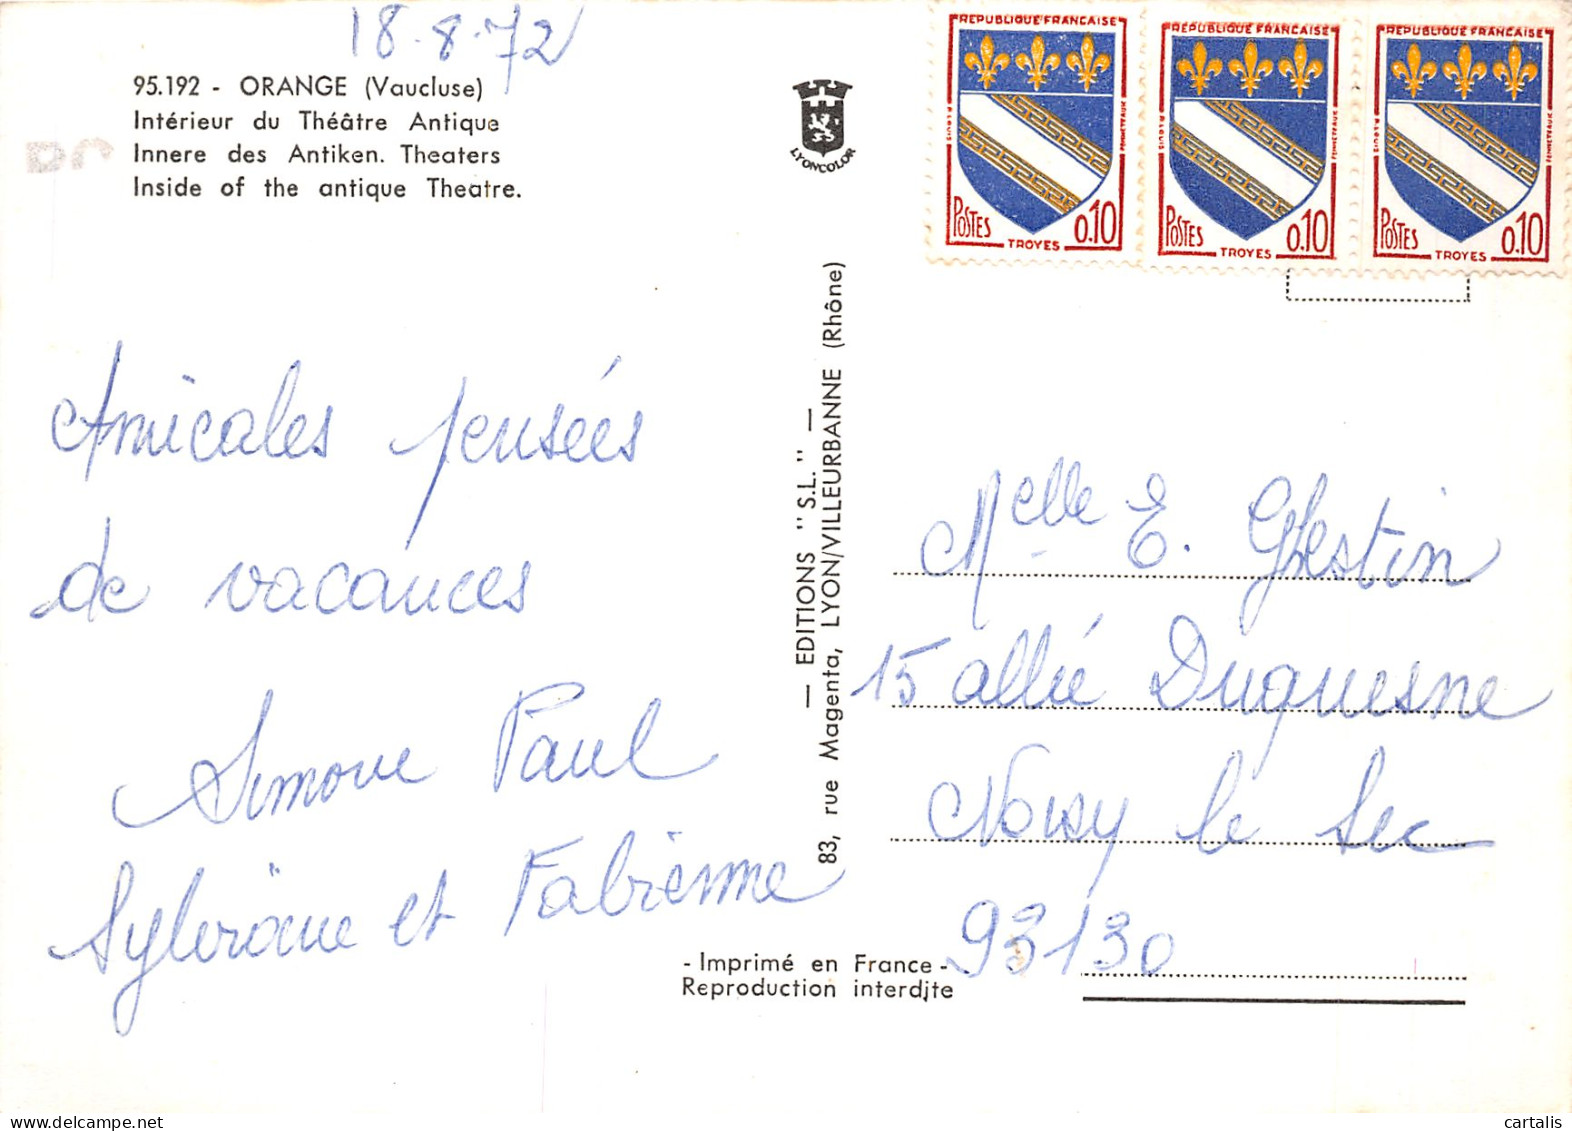 18-8-72
95.192 - ORANGE (Vaucluse)
Intérieur du Théâtre Antique
Innere des Antiken. Theaters
Inside of the antique Theatre.
LYONCOLOR
REPUBLIQUE FRANÇAISE
POSTES
0.10
TROYES
REPUBLIQUE FRANÇAISE
POSTES
0.10
TROYES
REPUBLIQUE FRANÇAISE
POSTES
0.10
TROYES
Amicales pensées
de vacances
Simone Paul
Sylviane et Fabienne
— EDITIONS "S.L." —
83, rue Magenta, LYON/VILLEURBANNE (Rhône)
Melle E. Ghestin
15 allée Duquesne
Noisy le Sec
93130
- Imprimé en France -
Reproduction interdite
cartalis